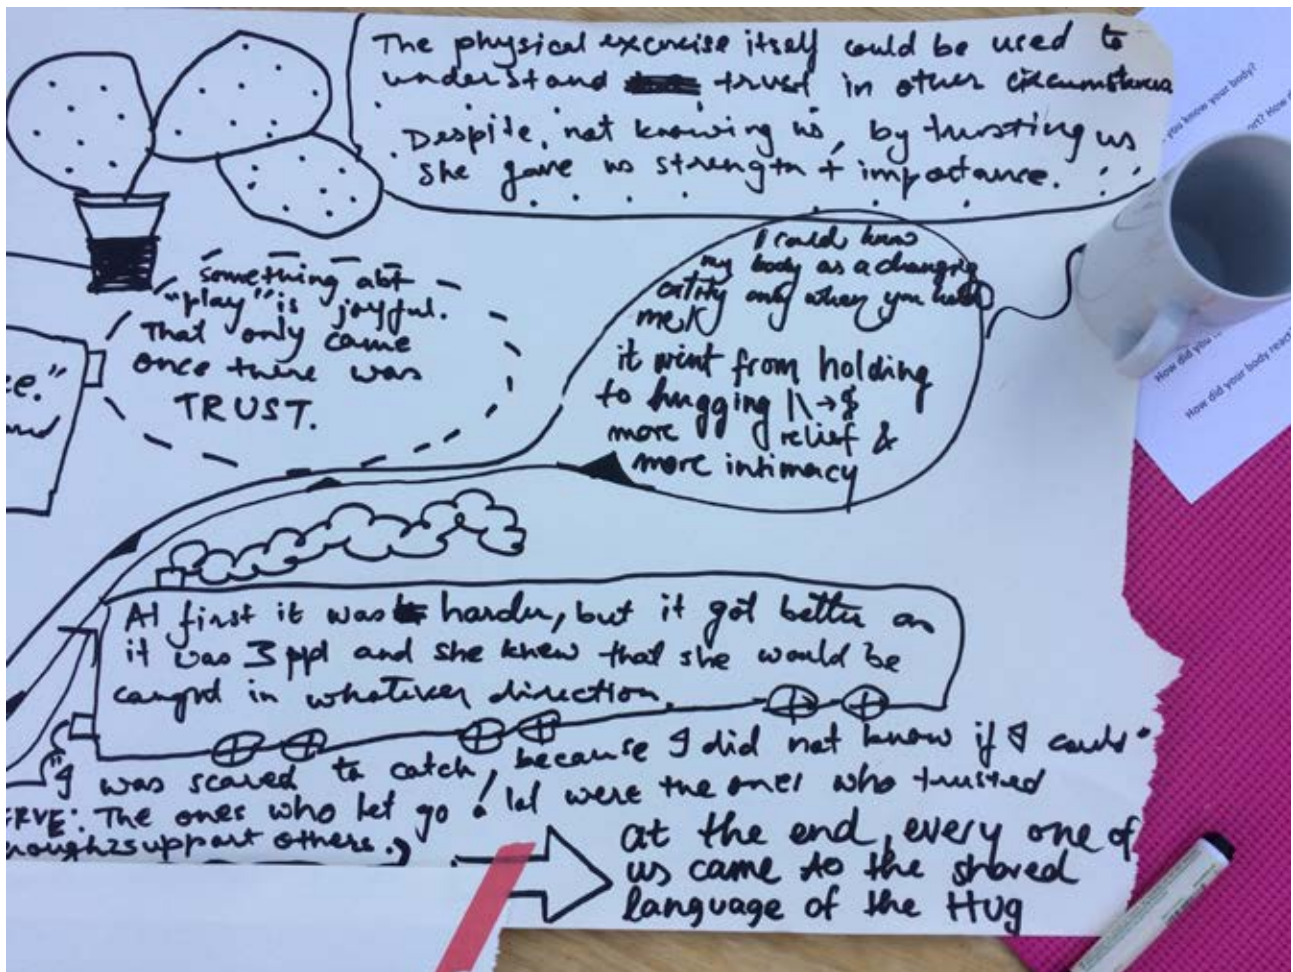 The physical excercise itself could be used to
understand trust in other circumstances
Despite, not knowing us, by trusting us
she gave us strength + importance.
something abt
"play" is joyful.
That only came
once there was
TRUST.
I could know
my body as a changing
entity only when you held
me.
it went from holding
to hugging
more relief &
more intimacy
At first it was harder, but it got better as
it was 3 ppl and she knew that she would be
caught in whatever direction.
"I was scared to catch, because I did not know if I could"
ERVE: The ones who let go a lot were the ones who trusted
nough 2 support others.
at the end, every one of
us came to the shared
language of the Hug
ee."
and
you know your body?
How did you
How did your body react